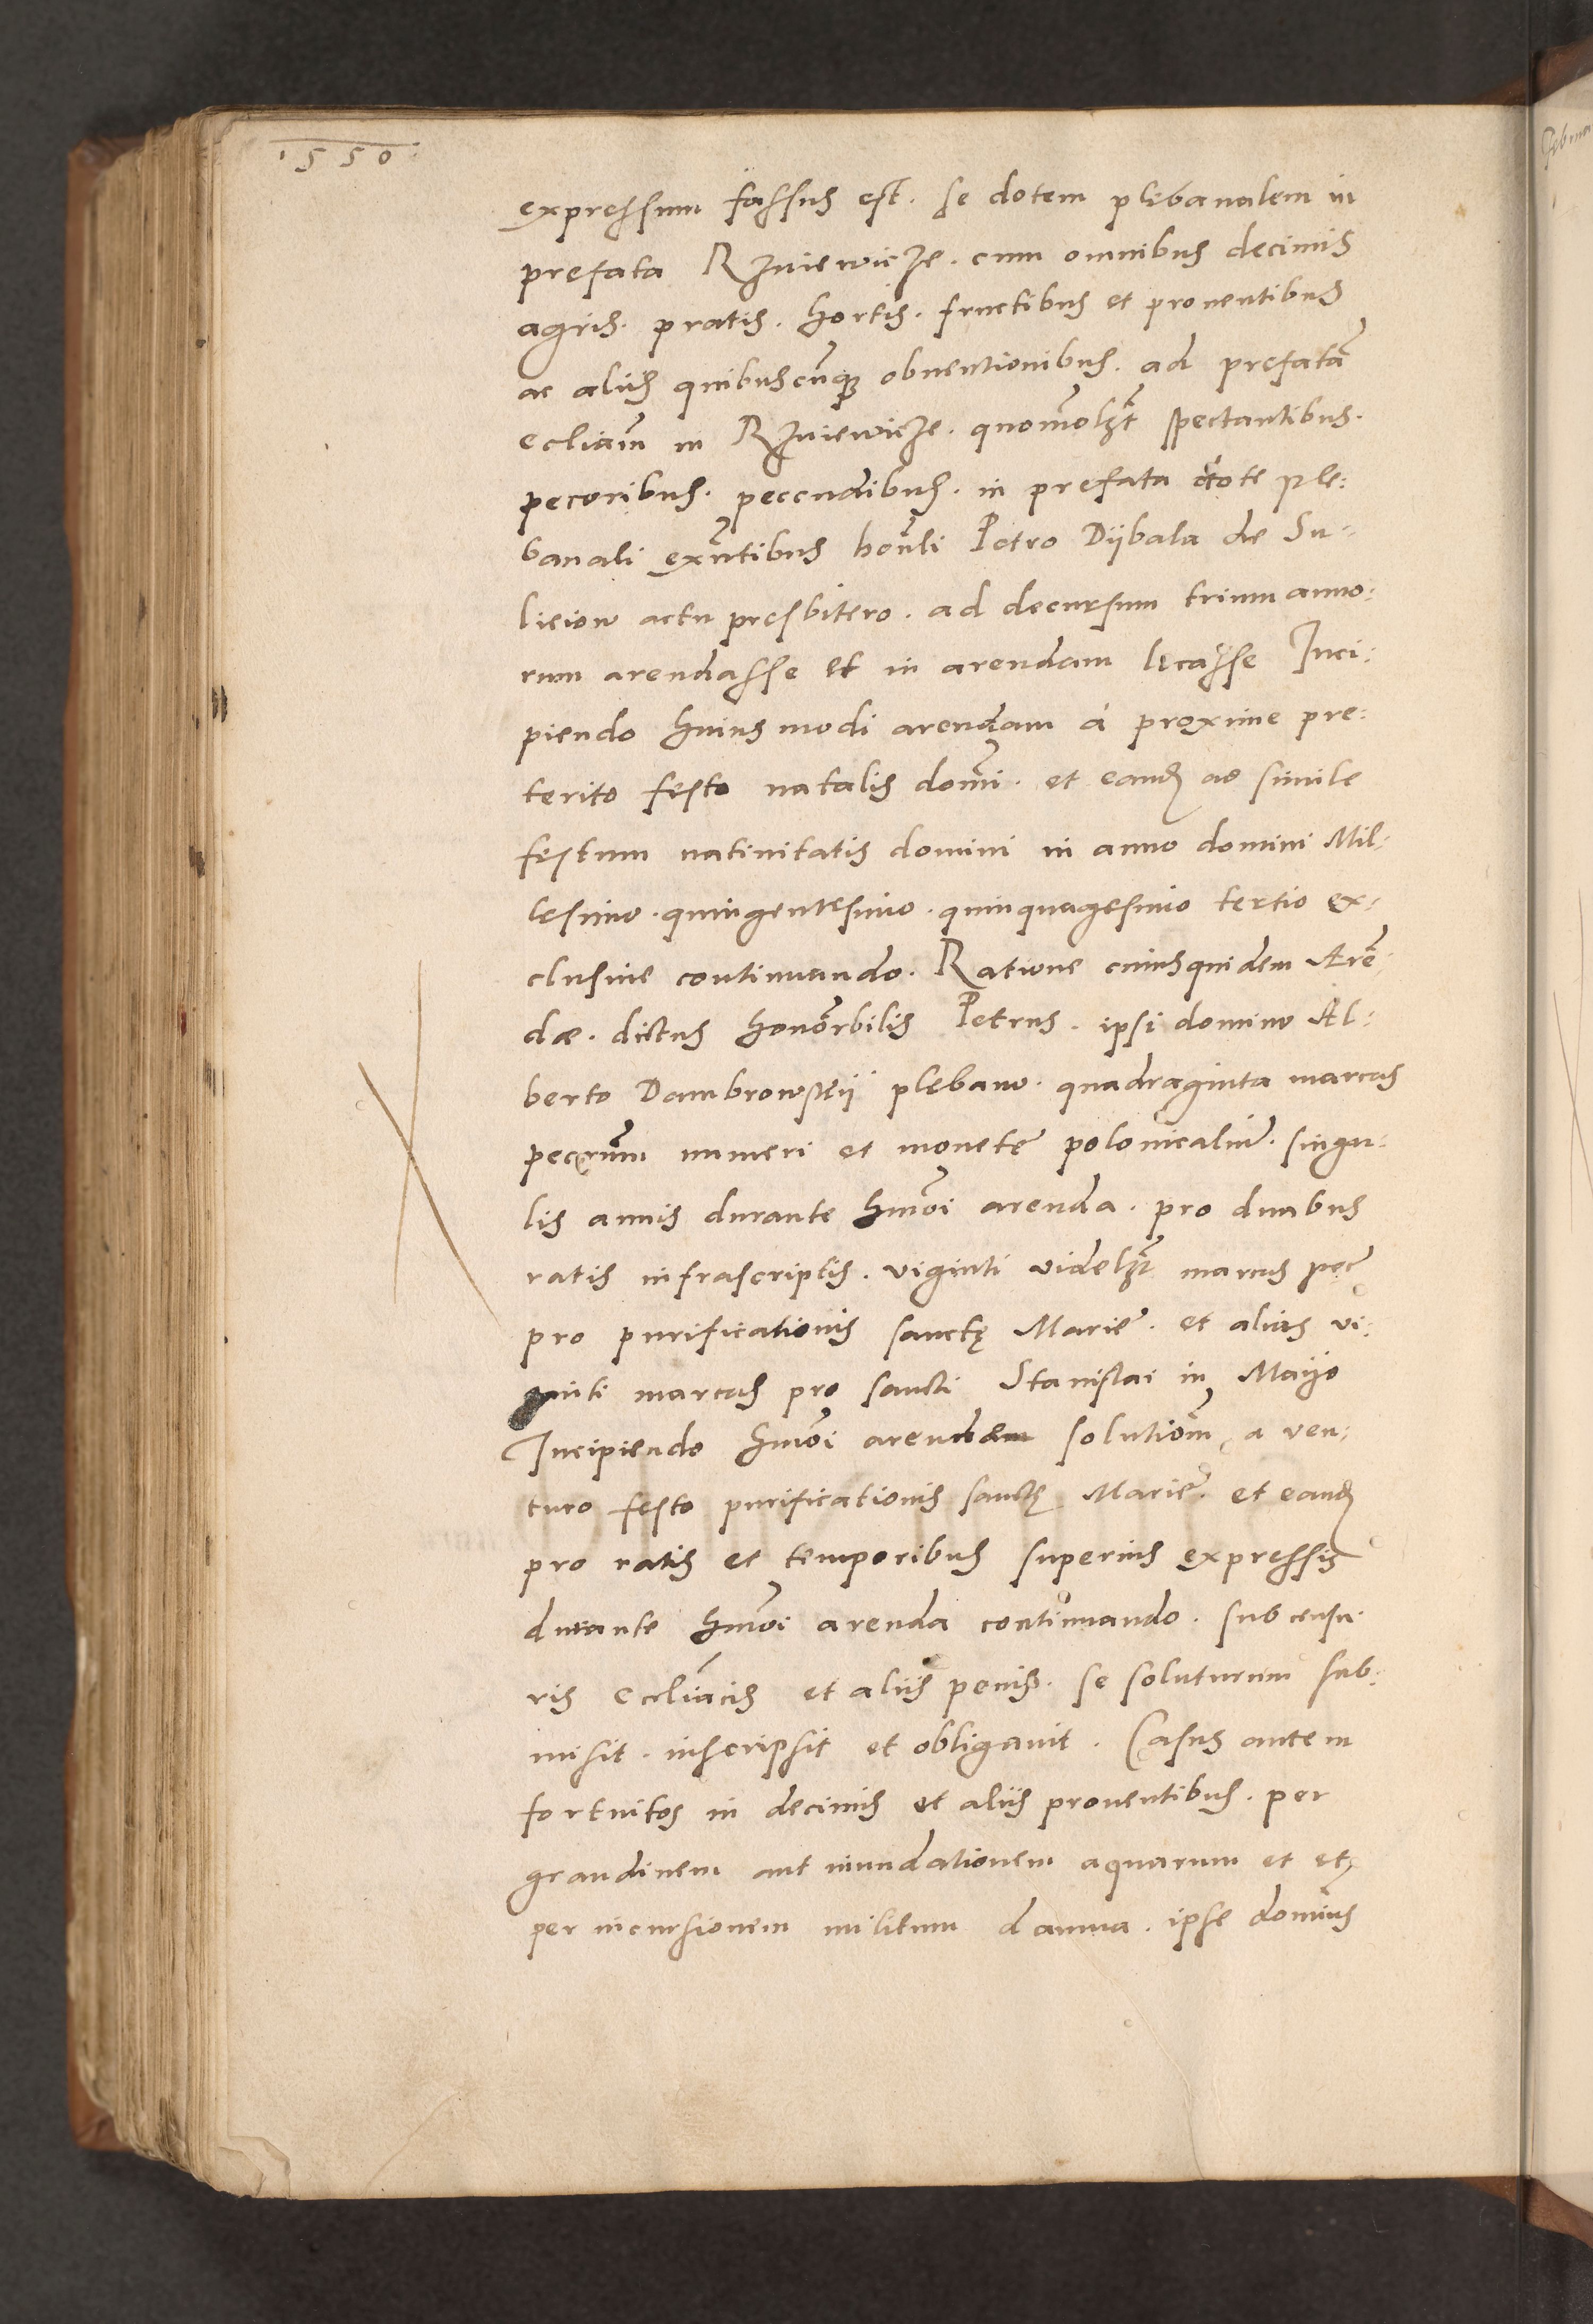 1550
expressum fassus est. se dotem plebanalem in
prefata Rzniewicze. cum omnibus decimis
agris. pratis. hortis. fructibus et prouentibus
ac alijs quibuscunq obuentionibus. ad prefatā
eccliam̄ in Rzniewicze. quomolzt spectantibus.
pecoribus. peccudibus. in prefata dote ple:
banali exn̄tibus honli Petro Dijbala de Su:
lieiow actu presbitero. ad decursum trium anno:
rum arendasse et in arendam locasse Inci:
piendo huiusmodi arendam à proxime pre:
terito festo natalis domi. et eand ad simile
festum natiuitatis domini in anno domini Mil:
lesimo. quingentesimo. quinquagesimo tertio ex:
clusiue continuando. Ratione cuiusquidem Arē
dæ. dictus honorbilis Petrus. ipsi domino Al:
berto Dambrowskij plebano. quadraginta marcas
pecrum numeri et monete polonicaliū. singu:
lis annis durante hmōi arenda. pro duabus
ratis infrascriptis. viginti videlzt marcas pec
pro purificationis sanctę Marie. et alias vi:
ginti marcas pro sancti Stanislai in Maijo
Incipiendo hmōi arendæ solutiōm a ven:
turo festo purificationis sanctę Marie. et eand
pro ratis et temporibus superius expressis
durante hmōi arenda continuando. sub censu:
ris eccliacis et alijs penis. se soluturum sub:
misit. inscripsit et obligauit. Casus autem
fortuitos in decimis et alijs prouentibus. per
grandinem aut inundationem aquarum et et
per incursionem militum damna. ipse dominus